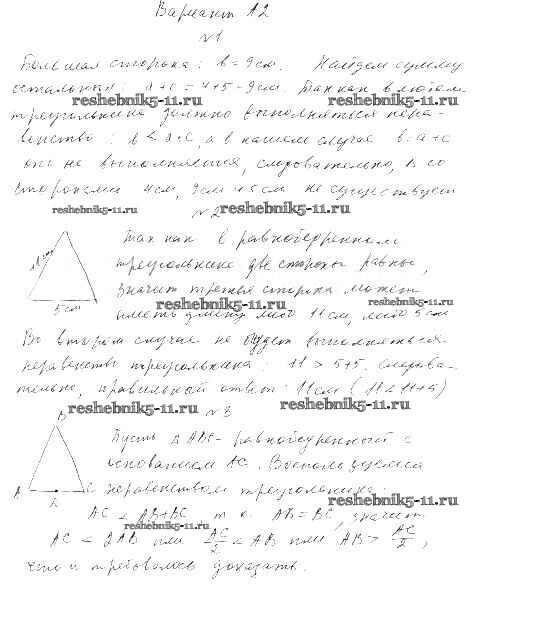 Вариант А2
№1
Большая сторона: b = 9см. Найдем сумму
остальных: a + c = 4 + 5 = 9см. Так как в любом
reshebnik5-11.ru reshebnik5-11.ru
треугольнике должно выполняться нера-
венство: b < a + c, а в нашем случае b = a + c
оно не выполняется, следовательно, Δ со
сторонами 4см, 9см и 5см не существует
reshebnik5-11.ru №2 reshebnik5-11.ru
Так как в равнобедренном
треугольнике две стороны равны,
11 см
значит третья сторона может
reshebnik5-11.ru reshebnik5-11.ru
5 см
иметь длину либо 11см, либо 5см
Во втором случае не будет выполняться
неравенство треугольника: 11 > 5+5. Следова-
тельно, правильный ответ: 11см (11 < 11+5)
reshebnik5-11.ru №3 reshebnik5-11.ru
B
Пусть Δ ABC - равнобедренный с
основанием AC. Воспользуемся
A C неравенством треугольника:
reshebnik5-11.ru
AC < AB+BC т.к. AB = BC, значит
reshebnik5-11.ru
AC < 2AB или AC/2 < AB или AB > AC/2,
что и требовалось доказать.